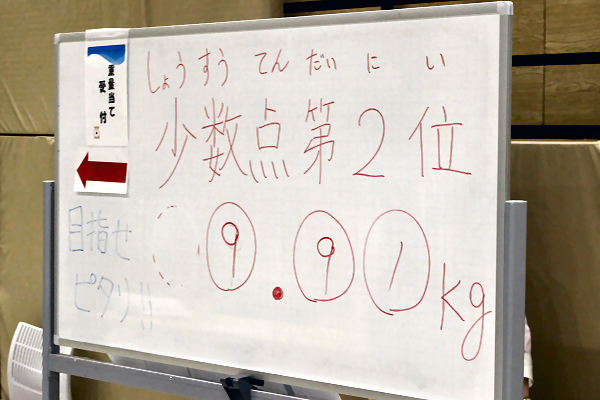 重量当て
受付
しょうすうてんだいにい
少数点第2位
9.91kg
目指せ
ピタリ!!